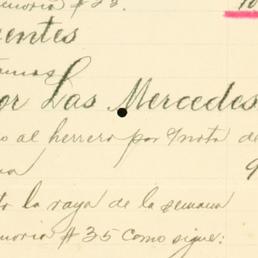 memoria # 23. 10
entes
or Las Mercedes
o al herrero por 9 nota de
to la raya de la semana
memoria # 35 como sigue: